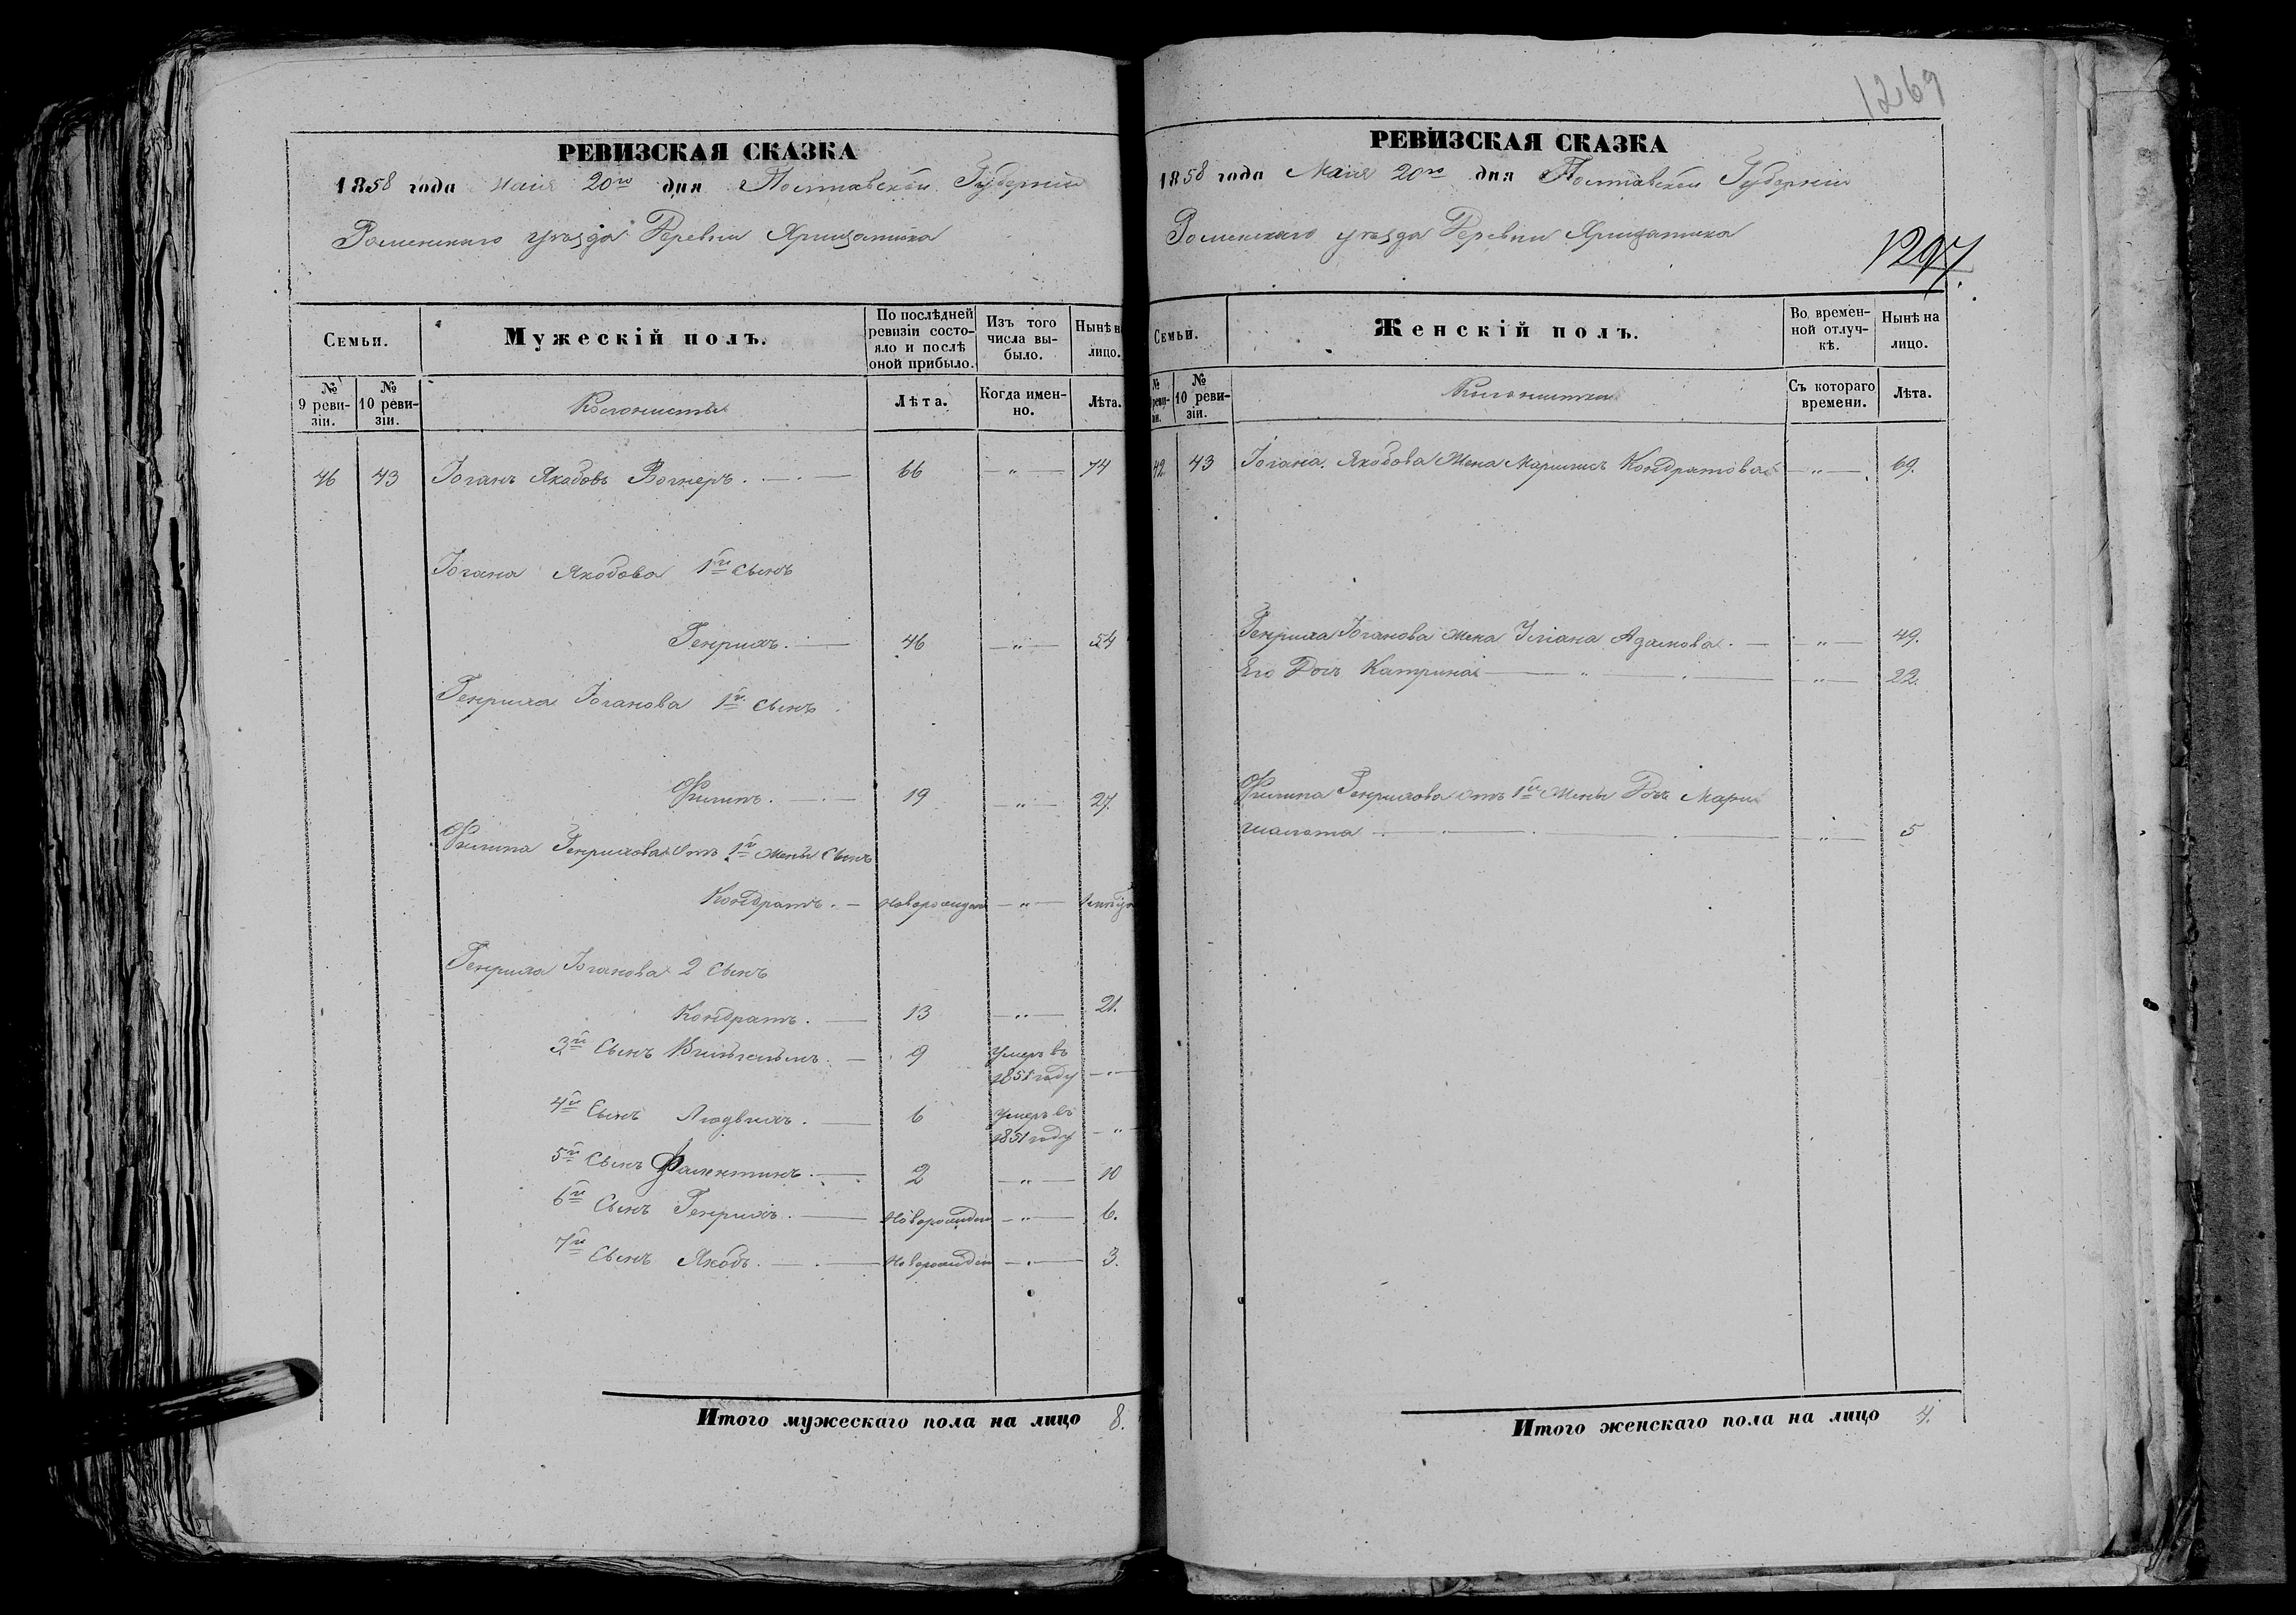 РЕВИЗСКАЯ СКАЗКА
1858 года Маія 20го дня Полтавской Губерніи
Роменскаго уѣзда Деревни
Семьи.
Мужескій полъ.
По послѣдней ревизіи состояло и послѣ оной прибыло.
Изъ того числа выбыло.
Нынѣ на лицо.
№ 9 ревизіи.
№ 10 ревизіи.
Колонисты
Лѣта.
Когда именно.
Лѣта.
46 43 Іоганъ Якобовъ Вагнеръ. 66 — " — 74
Іогана Якобова 1й сынъ
Генрихъ. 46 — " — 54
Генриха Іоганова 1й сынъ
Филипъ. 19 — " — 27.
Филипа Генрихова отъ 1й жены сынъ
Кондратъ. — новорожден — " —
Генриха Іоганова 2 сынъ
Кондратъ. 13 — " — 21.
3й сынъ Вильгельмъ. — 9 Умеръ въ
1851 году — " —
4й сынъ Людвихъ. 6 Умеръ въ
1851 году — " —
5й сынъ Фалентинъ. 2 — " — 10
6й сынъ Генрихъ. новорожден — " — 6.
7й сынъ Якобъ. новорожден — " — 3.
Итого мужескаго пола на лицо 8.
1269
РЕВИЗСКАЯ СКАЗКА
1858 года Маія 20го дня Полтавской Губерніи
Роменскаго уѣзда Деревни
1297.
Семьи.
Женскій полъ.
Во временной отлучкѣ.
Нынѣ на лицо.
№ 10 ревизіи.
Съ котораго времени.
Лѣта.
42 43 Іогана Якобова Жена Кондратова — " — 69.
Генриха Іоганова жена Адамова. — — " — 49.
Его Дочь Катрина — " — 22.
Филипа Генрихова отъ 1й жены Дочь Мари
шалота — " — 5
Итого женскаго пола на лицо 4.